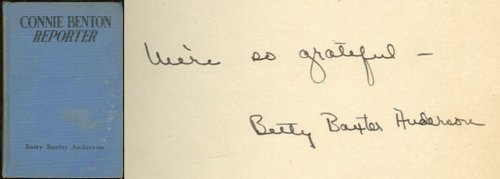 CONNIE BENTON
REPORTER
Betty Baxter Anderson
We're so grateful —
Betty Baxter Anderson